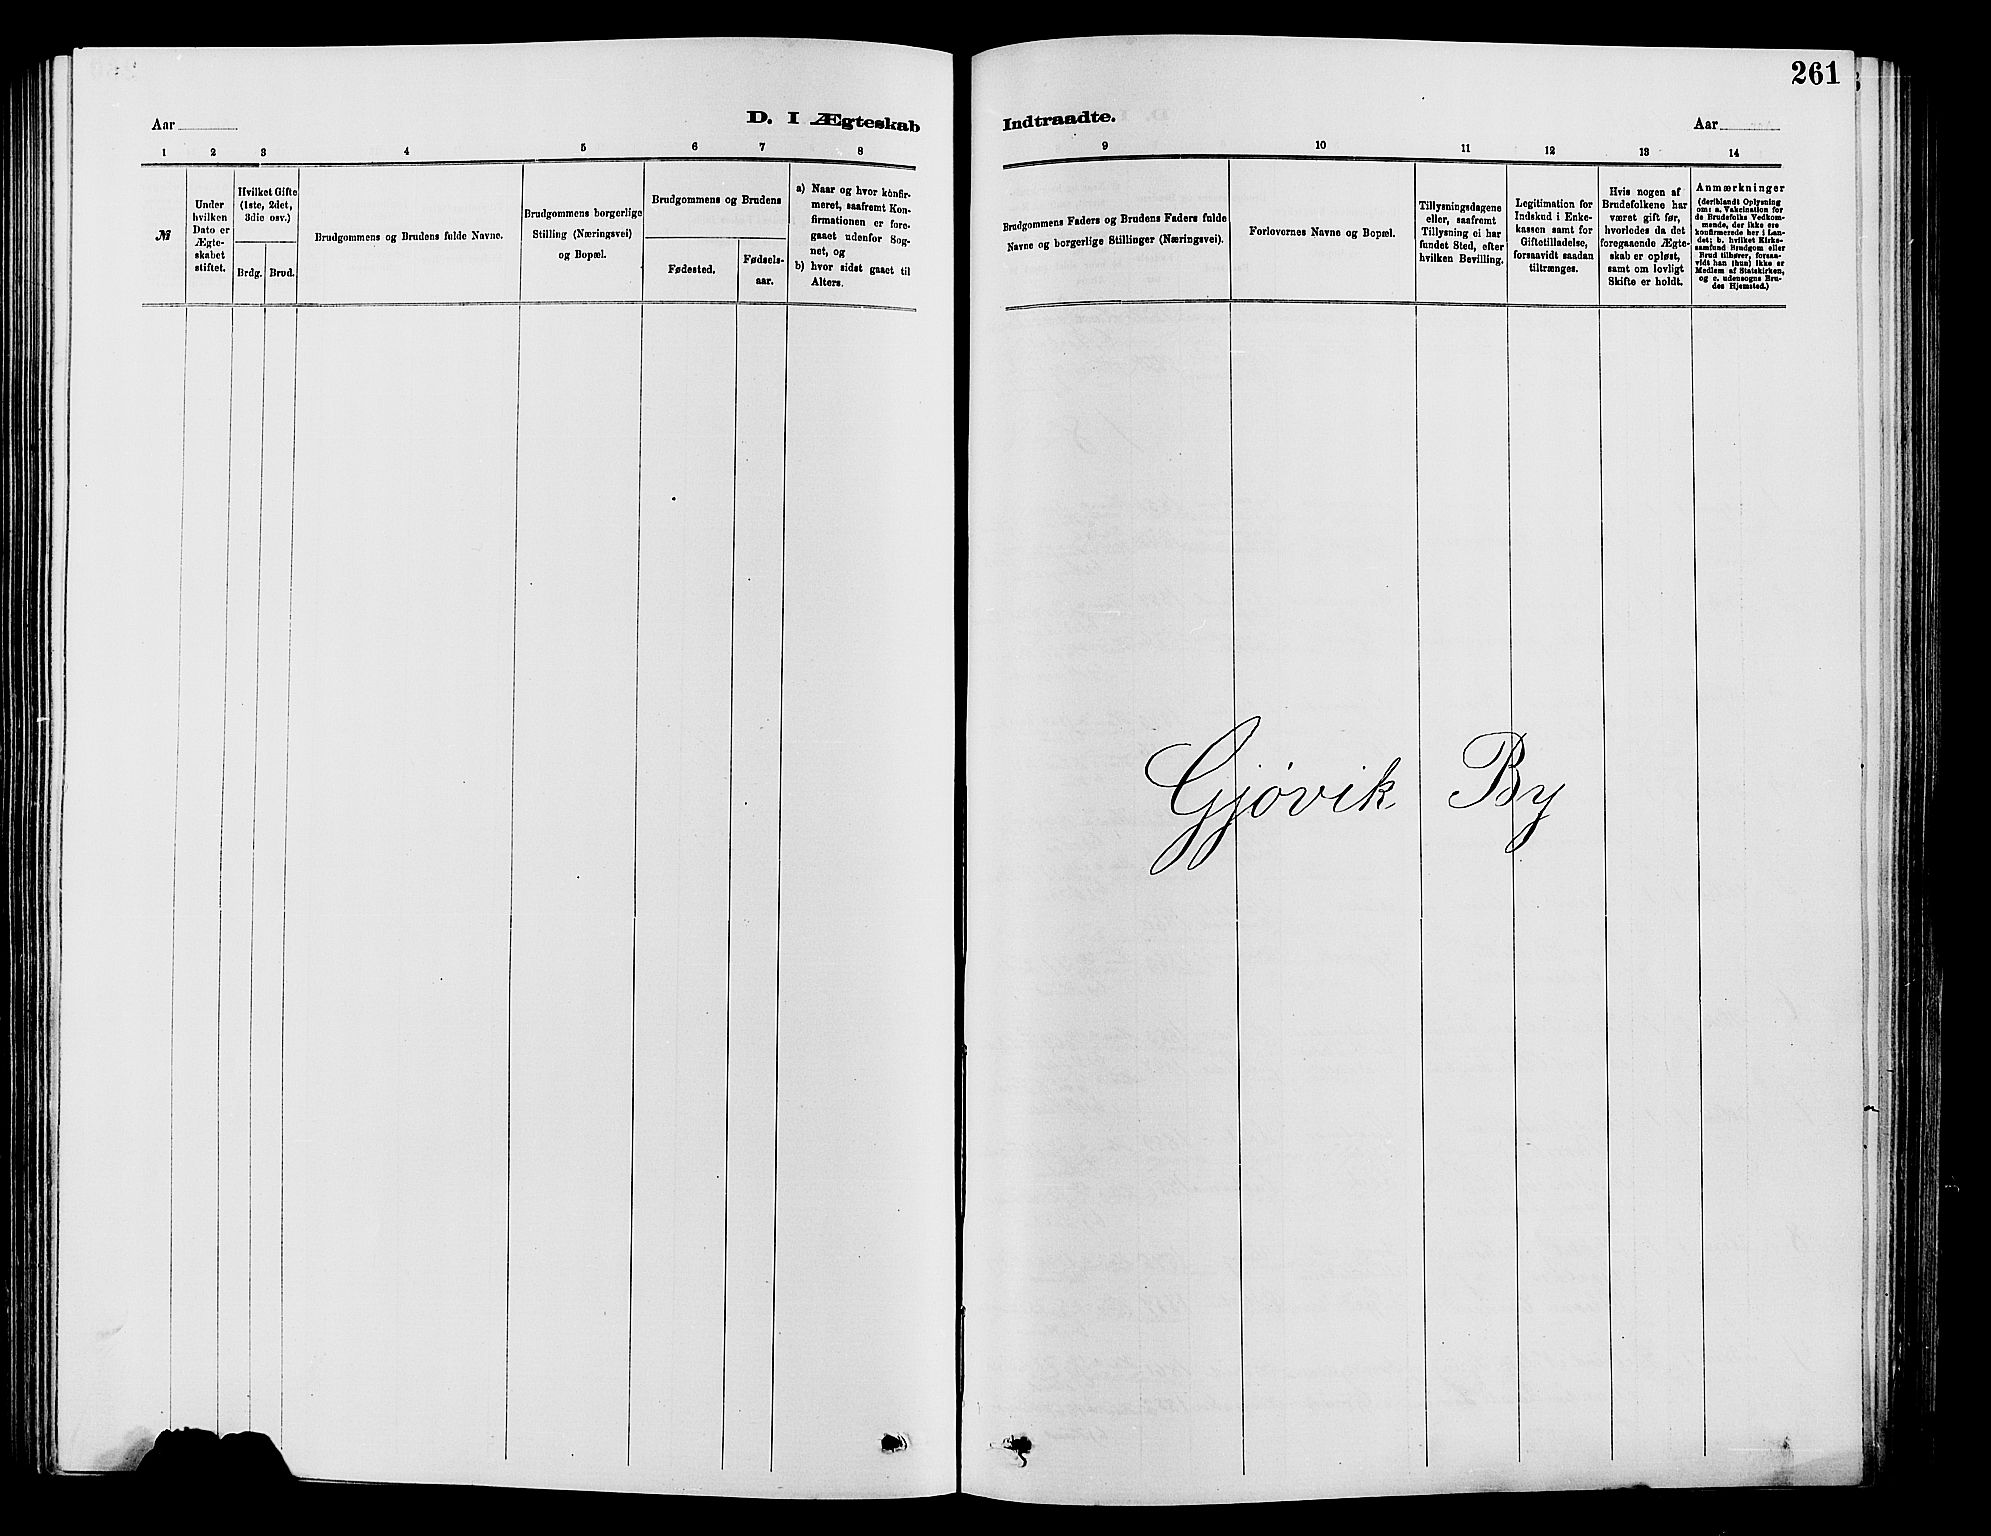 261
Aar
D. I Ægteskab
Indtraadte.
Aar
1 2 3 4 5 6 7 8
9 10 11 12 13 14
№
Under
hvilken
Dato er
Ægte-
skabet
stiftet.
Hvilket Gifte
(1ste, 2det,
3die osv.)
Brdg. Brud.
Brudgommens og Brudens fulde Navne.
Brudgommens borgerlige
Stilling (Næringsvei)
og Bopæl.
Brudgommens og Brudens
Fødested.
Fødsels-
aar.
a) Naar og hvor konfir-
meret, saafremt Kon-
firmationen er fore-
gaaet udenfor Sog-
net, og
b) hvor sidst gaaet til
Alters.
Brudgommens Faders og Brudens Faders fulde
Navne og borgerlige Stillinger (Næringsvei).
Forlovernes Navne og Bopæl.
Tillysningsdagene
eller, saafremt
Tillysning ei har
fundet Sted, efter
hvilken Bevilling.
Legitimation for
Indskud i Enke-
kassen samt for
Giftetilladelse,
forsaavidt saadan
tiltrænges.
Hvis nogen af
Brudefolkene har
været gift før,
hvorledes da det
foregaaende Ægte-
skab er opløst,
samt om lovligt
Skifte er holdt.
Anmærkninger
(deriblandt Oplysning
om: a. Vakcination for
de Brudefolks Vedkom-
mende, der ikke ere
konfirmerede her i Lan-
det; b. hvilket Kirke-
samfund Brudgom eller
Brud tilhører, forsaa-
vidt han (hun) ikke er
Medlem af Statskirken,
og c. udensogns Bru-
des Hjemsted.)
Gjövik By